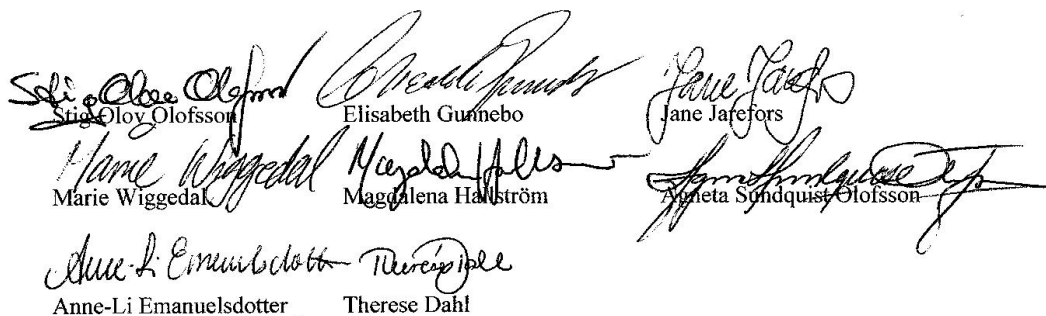 Stig Olov Olofsson Elisabeth Gunnebo Jane Jarefors
Marie Wiggedal Magdalena Hallström Agneta Sundquist Olofsson
Anne-Li Emanuelsdotter Therese Dahl